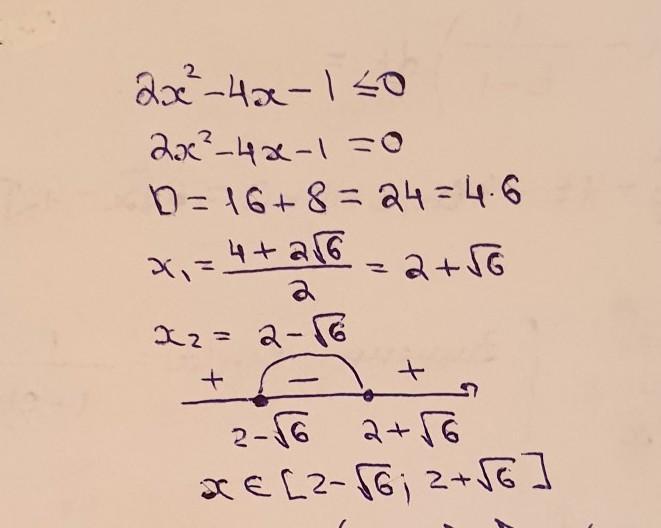 2x²-4x-1≤0
2x²-4x-1=0
D=16+8=24=4·6
x₁=\frac{4+2√6}{2}=2+√6
x₂=2-√6
+ − +
2-√6 2+√6
x∈[2-√6; 2+√6]